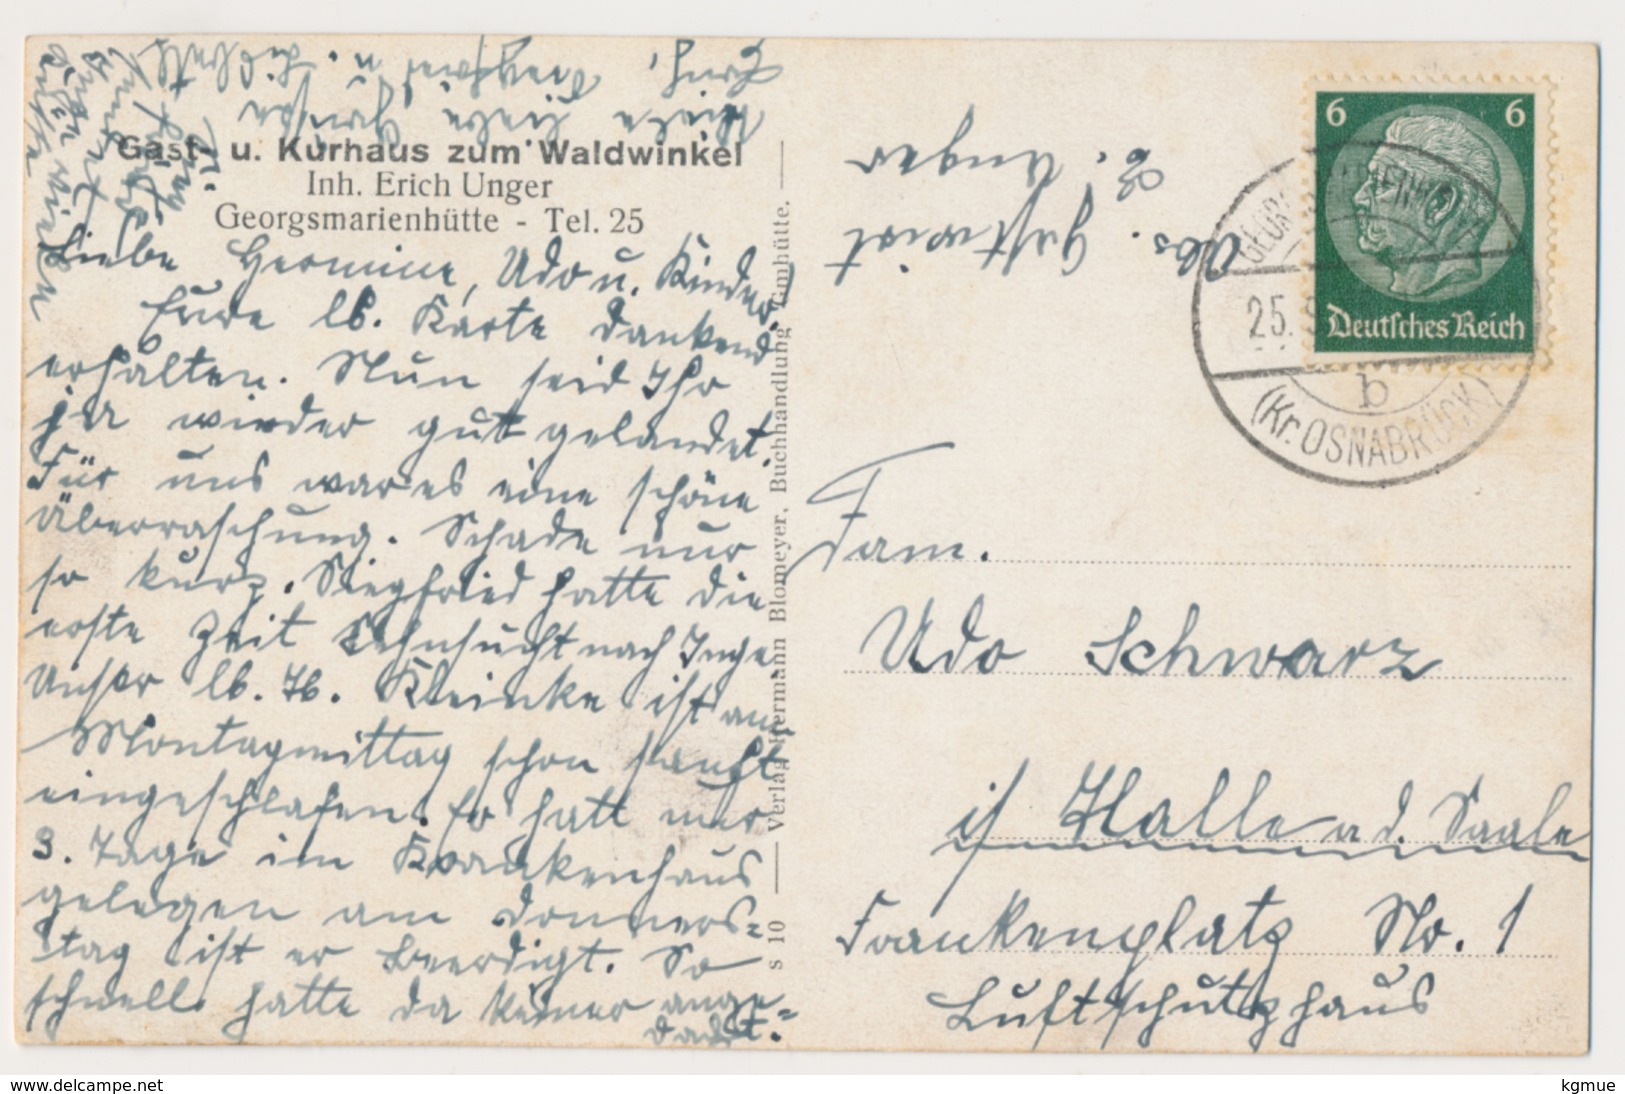 Gast- u. Kurhaus zum Waldwinkel
Inh. Erich Unger
Georgsmarienhütte - Tel. 25
Liebe Hermine, Udo u. Kinder!
Eure lb. Karte dankend
erhalten. Nun seid Ihr
ja wieder gut gelandet.
Für uns war es eine schöne
Überraschung. Schade nur
so kurz. Siegfried hatte die
erste Zeit Sehnsucht nach Inge
Unser lb. H. Kleinke ist am
Montagmittag schon sanft
eingeschlafen. Er hatt nur
3. Tage im Krankenhaus
gelegen am Donners=
tag ist er beerdigt. So
schnell hatte da keiner ange=
dacht.
Viele liebe Grüße
Erich, Siegfried u.
s 10 — Verlag Hermann Blomeyer, Buchhandlung, Gmhütte. —
Abs. Gastwirt
E. Unger
6 6
Deutsches Reich
25.
b
(Kr. OSNABRÜCK)
Fam.
Udo Schwarz
is Halle a d. Saale
Frankenplatz No. 1
Luftschutzhaus
www.delcampe.net
kgmue